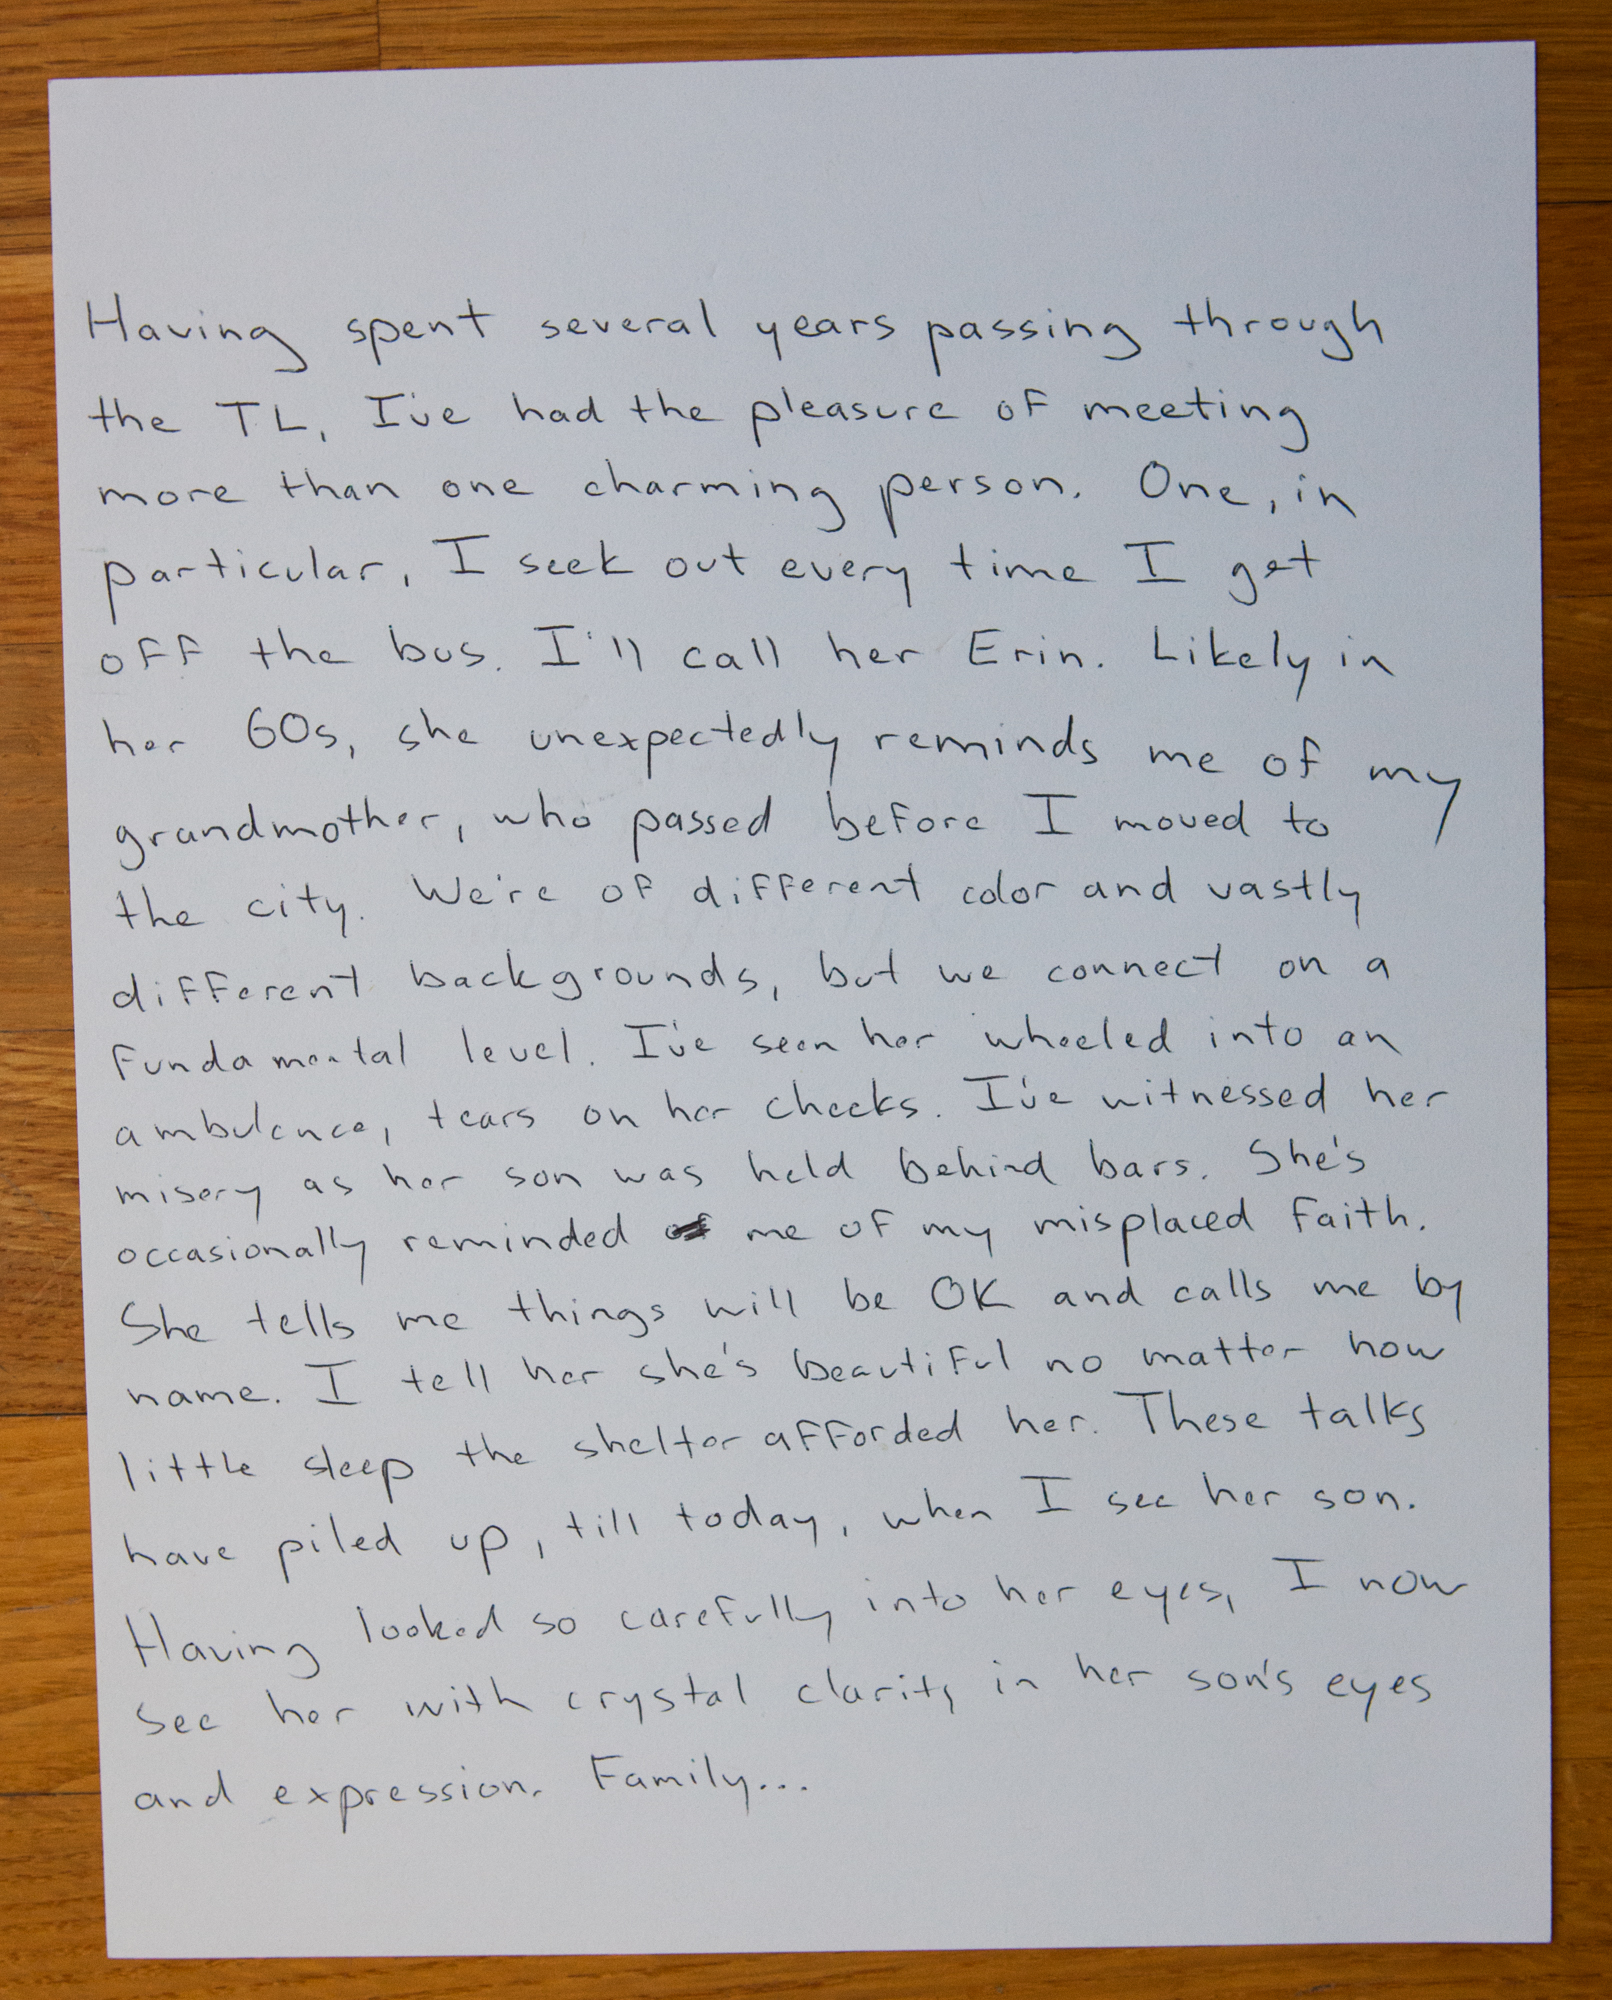 Having spent several years passing through
the TL, I've had the pleasure of meeting
more than one charming person. One, in
particular, I seek out every time I get
off the bus. I'll call her Erin. Likely in
her 60s, she unexpectedly reminds me of my
grandmother, who passed before I moved to
the city. We're of different color and vastly
different backgrounds, but we connect on a
fundamental level. I've seen her wheeled into an
ambulance, tears on her cheeks. I've witnessed her
misery as her son was held behind bars. She's
occasionally reminded me of my misplaced faith.
She tells me things will be OK and calls me by
name. I tell her she's beautiful no matter how
little sleep the shelter afforded her. These talks
have piled up, till today, when I see her son.
Having looked so carefully into her eyes, I now
see her with crystal clarity in her son's eyes
and expression. Family...